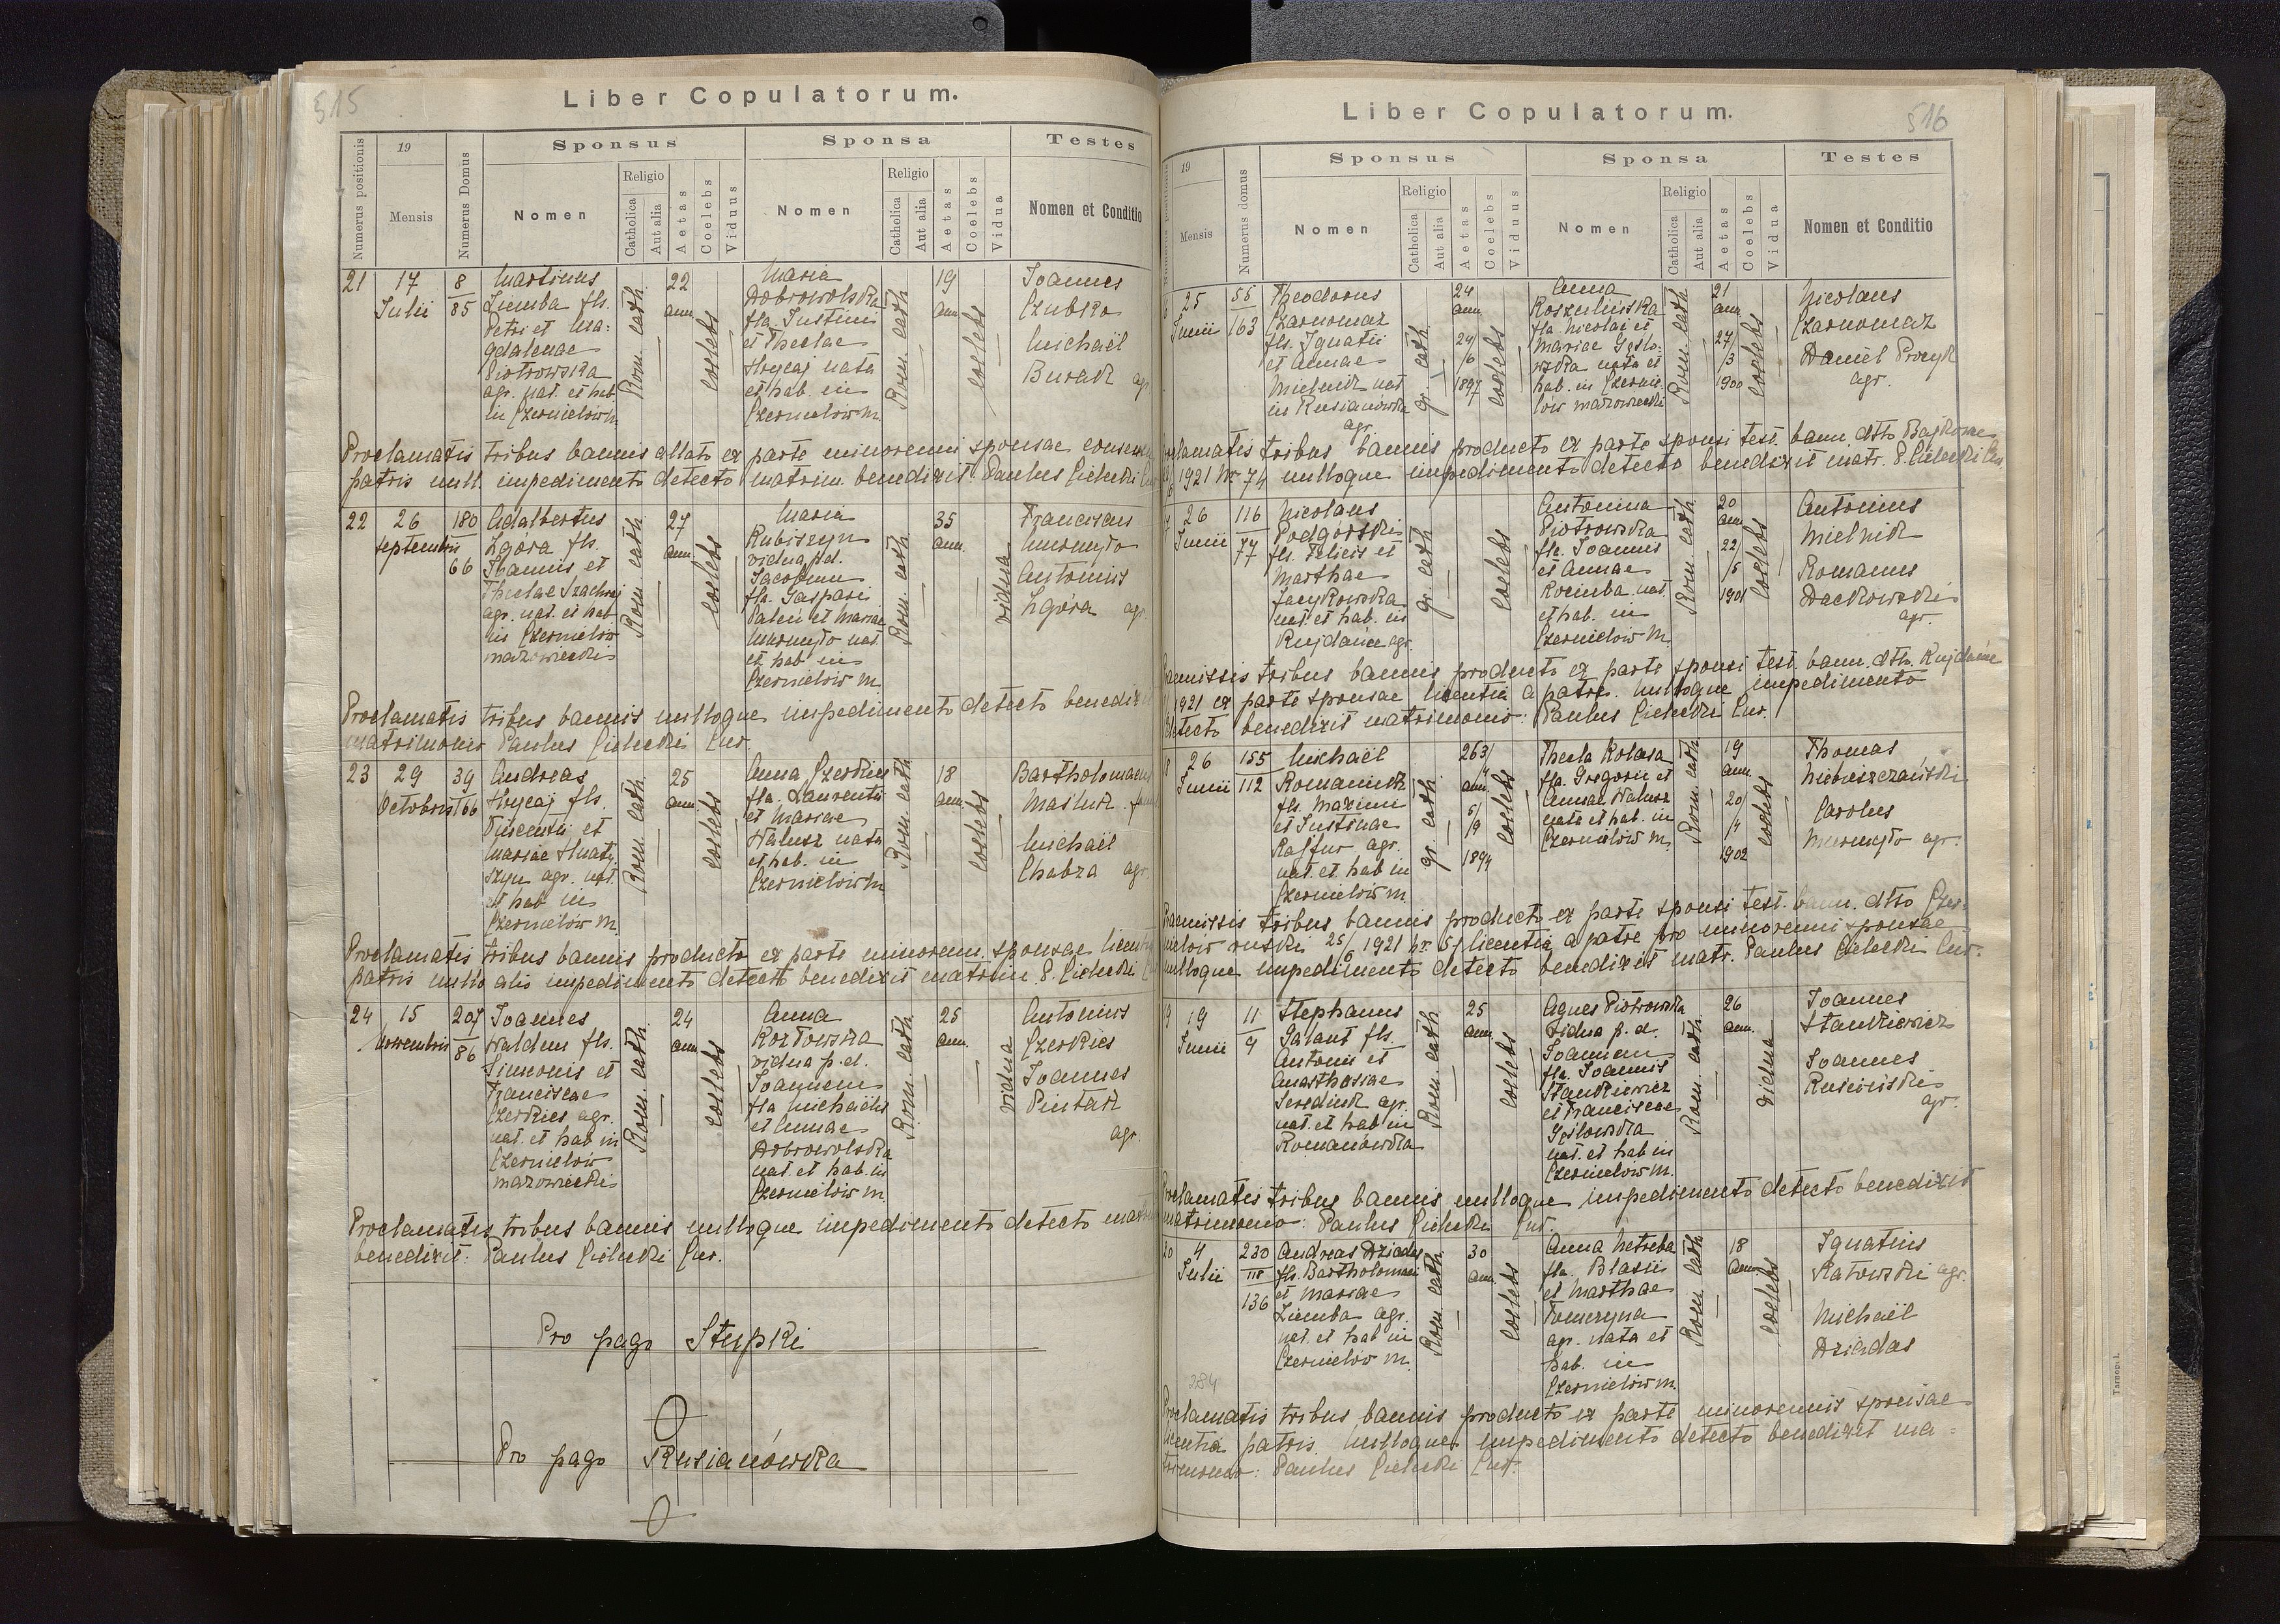 515
Liber Copulatorum.
Numerus positionis
19
Mensis
Numerus Domus
Sponsus
Nomen
Religio
Catholica
Aut alia
Aetas
Coelebs
Viduus
Sponsa
Nomen
Religio
Catholica
Aut alia
Aetas
Coelebs
Vidua
Testes
Nomen et Conditio
21
17
Julii
8
85
Martinus
Ziemba fls.
Petri et Ma=
gdalenae
Piotrowska
agr. nat. et hab.
in Czernielów M.
Rom. cath
22
ann.
coelebs
Maria
Dobrowolska
fla Justini
et Theclae
Hrycaj nata
et hab. in
Czernielów M.
Rom. cath
19
ann.
coelebs
Joannes
Czubko
Michaël
Burak agr
Proclamatis tribus bannis allato ex parte minorenni sponsae
patris null. impedimento detecto matrim. benedixit: Paulus Cielecki
22
26
Septembris
180
66
Adalbertus
Zgóra fls.
Joannis et
Theclae
agr. nat. et hab.
in Czernielów
mazowiecki
Rom. cath
27
ann.
coelebs
Maria
Kubiszyn
vidua p.d.
Jacobum
fla. Gaspari
et Mariae
nat.
et hab. in
Czernielów M.
Rom. cath
35
ann.
vidua
Franciscus
Antonius
Zgóra agr
Proclamatis tribus bannis nulloque impedimento detecto benedixit
matrimonio Paulus Cielecki Cur.
23
29
Octobris
39
166
Andreas
Hrycaj fls.
Vincentii et
Mariae
agr. nat.
et hab. in
Czernielów M.
Rom. cath
25
ann.
coelebs
Anna Czerkies
fla. Laurentii
et Mariae
Walusz nata
et hab. in
Czernielów M
Rom. cath
18
ann.
coelebs
Bartholomaeus
Michaël
Chabza agr.
Proclamatis tribus bannis producto ex parte minorenn. sponsae
patris nullo alio impedimento detecto benedixit matrim P. Cielecki
24
15
Novembris
207
86
Joannes
Waldus fls.
Simeonis et
Franciscae
Czerkies agr.
nat. et hab in
Czernielów
mazowiecki
Rom. cath
24
ann.
coelebs
Anna
Kozłowska
vidua p.d.
Joannem
fla Michaëlis
et Annae
Dobrowolska
nat et hab. in
Czernielów M.
Rom. cath
25
ann.
vidua
Antonius
Czerkies
Joannes
Pintak
agr.
Proclamatis tribus bannis nulloque impedimento detecto
benedixit: Paulus Cielecki Cur.
Pro pago Stupki
Pro pago Rusianówka
516
Liber Copulatorum.
19
Mensis
Numerus domus
Sponsus
Nomen
Religio
Catholica
Aut alia
Aetas
Coelebs
Viduus
Sponsa
Nomen
Religio
Catholica
Aut alia
Aetas
Coelebs
Vidua
Testes
Nomen et Conditio
25
Junii
55
163
Theodorus
Czarnomaz
fls. Ignatii
et Annae
Mielnik nat
in Rusianówka
agr.
gr. cath
24
ann.
24/
/6
1897
coelebs
Anna
fla Nicolai et
Mariae
nata et
hab. in Czernie-
lów mazowiecki
Rom. cath
21
ann.
27/
/3
1900
coelebs
Nicolaus
Czarnomaz
Daniel Procyk
agr.
tribus bannis producto ex parte sponsi test. bann. dtto
1921 Nr 74 nulloque impedimento detecto benedixit matr. P. Cielecki
26
Junii
116
77
Nicolaus
Podgórski
fls. Felicis et
Marthae
Jacykowska
nat. et hab. in
agr.
gr. cath
coelebs
Antonina
Piotrowska
fla. Joannis
et Annae
Kociuba nat.
et hab. in
Czernielów M.
Rom. cath
20
ann.
22/
/5
1901
coelebs
Antonius
Mielnik
Romanus
Dackowski
agr.
tribus bannis producto ex parte sponsi test. bann. dtto.
1921 ex parte sponsae licentia a patre. nulloque impedimento
detecto benedixit matrimonio: Paulus Cielecki Cur.
26
Junii
155
112
Michaël
Romaniuk
fls. Maximi
et Justinae
agr.
nat. et hab in
Czernielów M.
gr. cath
ann.
5/
/9
1894
coelebs
Thecla Kolasa
fla. Gregorii et
Annae Walusz
nata et hab. in
Czernielów M.
Rom. cath
19
ann.
20/
/4
1902
coelebs
Thomas
Niebieszczański
Carolus
agr.
tribus bannis producto ex parte sponsi test. bann. dtto Czer-
nielów ruski 25/6 1921 nr 5/ licentia a patre pro minorenni sponsae
nulloque impedimento detecto benedixit matr. Paulus Cielecki Cur.
19
Junii
11
9
Stephanus
Galant fls.
Antonii et
Anasthasiae
agr.
nat. et hab in
Romanówka
Rom. cath
25
ann.
coelebs
Agnes Piotrowska
vidua p.d.
Joannem
fla. Joannis
Stankiewicz
et Franciscae
nat. et hab in
Czernielów M.
Rom. cath
26
ann.
vidua
Joannes
Stankiewicz
Joannes
Rusiński
agr.
Proclamatis tribus bannis nulloque impedimento detecto benedixit
matrimonio: Paulus Cielecki Cur.
20
4
Julii
230
118
136
Andreas Dziadas
fls. Bartholomaei
et Mariae
Ziemba agr.
nat. et hab in
Czernielów M.
Rom. cath
30
ann.
coelebs
Anna Netreba
fla. Blasii
et Marthae
agr. nata et
hab. in
Czernielów M.
Rom. cath
18
ann.
coelebs
Ignatius
Katowski agr.
Michaël
Dziadas
284
Proclamatis tribus bannis producto ex parte minorennis sponsae
licentia patris. Nulloque impedimento detecto benedixit ma=
trimonio: Paulus Cielecki Cur.